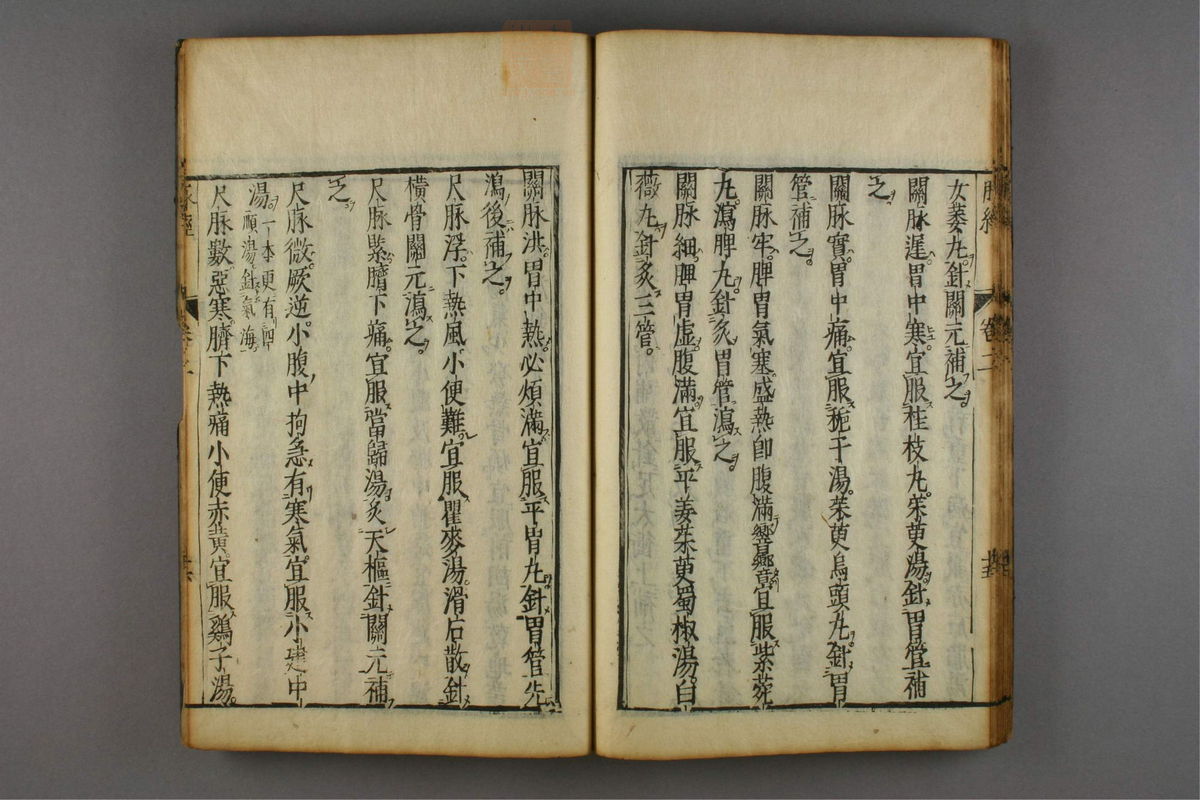 女萎丸針關元補之
關脉遲胃中寒宜服桂枝丸茱萸湯針胃管補
之
關脉實胃中痛宜服梔子湯茱萸烏頭丸針胃
管補之
關脉牢脾胃氣塞盛熱即腹滿響響宜服紫菀
丸瀉脾丸針灸胃管瀉之
關脉細脾胃虛腹滿宜服平姜茱萸蜀椒湯白
薇丸針灸三管
關脉洪胃中熱必煩滿宜服平胃丸針胃管先
瀉後補之
尺脉浮下熱風小便難宜服瞿麥湯滑石散針
橫骨關元瀉之
尺脉緊臍下痛宜服當歸湯灸天樞針關元補
之
尺脉微厥逆小腹中拘急有寒氣宜服小建中
湯一本更有四順湯針氣海
尺脉數惡寒臍下熱痛小便赤黃宜服鷄子湯